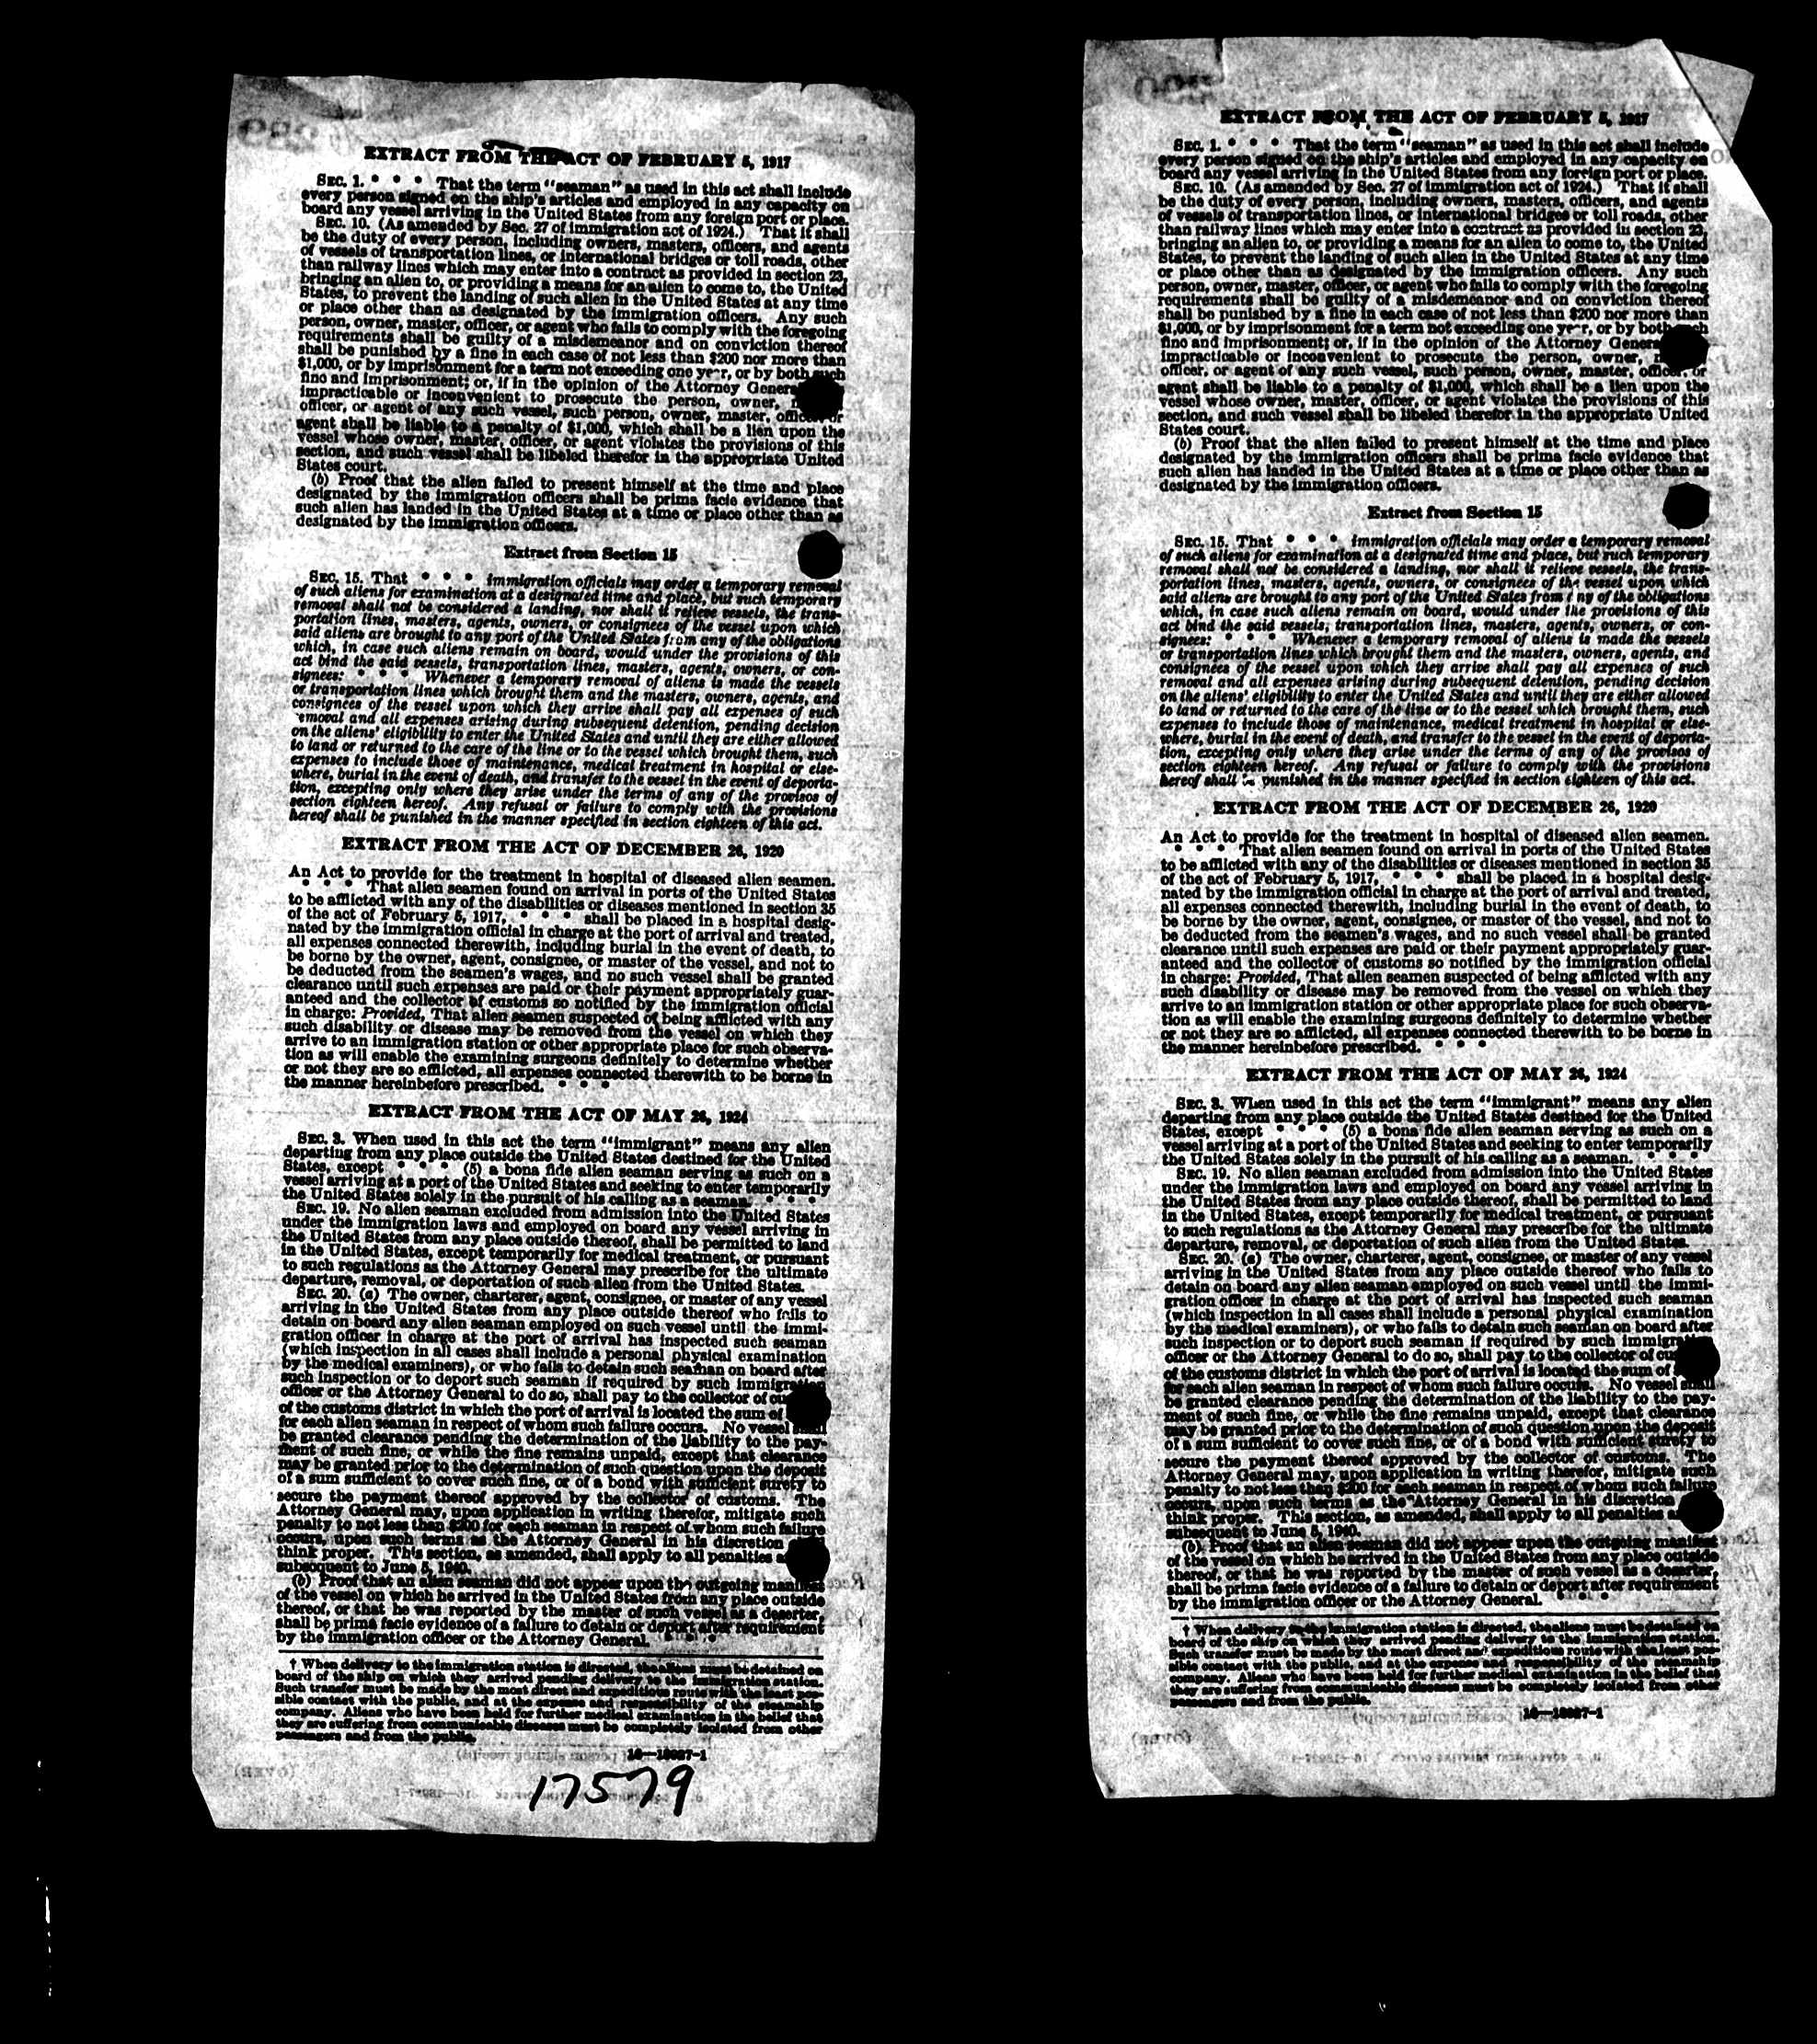 EXTRACT FROM THE ACT OF FEBRUARY 5, 1917
SEC. 1. * * * That the term "seaman" as used in this act shall include
every person signed on the ship's articles and employed in any capacity on
board any vessel arriving in the United States from any foreign port or place.
SEC. 10. (As amended by Sec. 27 of immigration act of 1924.) That it shall
be the duty of every person, including owners, masters, officers, and agents
of vessels of transportation lines, or international bridges or toll roads, other
than railway lines which may enter into a contract as provided in section 23,
bringing an alien to, or providing a means for an alien to come to, the United
States, to prevent the landing of such alien in the United States at any time
or place other than as designated by the immigration officers. Any such
person, owner, master, officer, or agent who fails to comply with the foregoing
requirements shall be guilty of a misdemeanor and on conviction thereof
shall be punished by a fine in each case of not less than $200 nor more than
$1,000, or by imprisonment for a term not exceeding one year, or by both such
fine and imprisonment; or, if in the opinion of the Attorney General
impracticable or inconvenient to prosecute the person, owner,
officer, or agent of any such vessel, such person, owner, master, officer, or
agent shall be liable to a penalty of $1,000, which shall be a lien upon the
vessel whose owner, master, officer, or agent violates the provisions of this
section, and such vessel shall be libeled therefor in the appropriate United
States court.
(b) Proof that the alien failed to present himself at the time and place
designated by the immigration officers shall be prima facie evidence that
such alien has landed in the United States at a time or place other than as
designated by the immigration officers.
Extract from Section 15
SEC. 15. That * * * immigration officials may order a temporary removal
of such aliens for examination at a designated time and place, but such temporary
removal shall not be considered a landing, nor shall it relieve vessels, the trans-
portation lines, masters, agents, owners, or consignees of the vessel upon which
said aliens are brought to any port of the United States from any of the obligations
which, in case such aliens remain on board, would under the provisions of this
act bind the said vessels, transportation lines, masters, agents, owners, or con-
signees: * * * Whenever a temporary removal of aliens is made the vessels
or transportation lines which brought them and the masters, owners, agents, and
consignees of the vessel upon which they arrive shall pay all expenses of such
removal and all expenses arising during subsequent detention, pending decision
on the aliens' eligibility to enter the United States and until they are either allowed
to land or returned to the care of the line or to the vessel which brought them, such
expenses to include those of maintenance, medical treatment in hospital or else-
where, burial in the event of death, and transfer to the vessel in the event of deporta-
tion, excepting only where they arise under the terms of any of the provisos of
section eighteen hereof. Any refusal or failure to comply with the provisions
hereof shall be punished in the manner specified in section eighteen of this act.
EXTRACT FROM THE ACT OF DECEMBER 26, 1920
An Act to provide for the treatment in hospital of diseased alien seamen.
* * * That alien seamen found on arrival in ports of the United States
to be afflicted with any of the disabilities or diseases mentioned in section 35
of the act of February 5, 1917, * * * shall be placed in a hospital desig-
nated by the immigration official in charge at the port of arrival and treated,
all expenses connected therewith, including burial in the event of death, to
be borne by the owner, agent, consignee, or master of the vessel, and not to
be deducted from the seamen's wages, and no such vessel shall be granted
clearance until such expenses are paid or their payment appropriately guar-
anteed and the collector of customs so notified by the immigration official
in charge: Provided, That alien seamen suspected of being afflicted with any
such disability or disease may be removed from the vessel on which they
arrive to an immigration station or other appropriate place for such observa-
tion as will enable the examining surgeons definitely to determine whether
or not they are so afflicted, all expenses connected therewith to be borne in
the manner hereinbefore prescribed. * * *
EXTRACT FROM THE ACT OF MAY 26, 1924
SEC. 3. When used in this act the term "immigrant" means any alien
departing from any place outside the United States destined for the United
States, except * * * (5) a bona fide alien seaman serving as such on a
vessel arriving at a port of the United States and seeking to enter temporarily
the United States solely in the pursuit of his calling as a seaman. * * *
SEC. 19. No alien seaman excluded from admission into the United States
under the immigration laws and employed on board any vessel arriving in
the United States from any place outside thereof, shall be permitted to land
in the United States, except temporarily for medical treatment, or pursuant
to such regulations as the Attorney General may prescribe for the ultimate
departure, removal, or deportation of such alien from the United States.
SEC. 20. (a) The owner, charterer, agent, consignee, or master of any vessel
arriving in the United States from any place outside thereof who fails to
detain on board any alien seaman employed on such vessel until the immi-
gration officer in charge at the port of arrival has inspected such seaman
(which inspection in all cases shall include a personal physical examination
by the medical examiners), or who fails to detain such seaman on board after
such inspection or to deport such seaman if required by such immigration
officer or the Attorney General to do so, shall pay to the collector of
of the customs district in which the port of arrival is located the sum of
for each alien seaman in respect of whom such failure occurs. No vessel shall
be granted clearance pending the determination of the liability to the pay-
ment of such fine, or while the fine remains unpaid, except that clearance
may be granted prior to the determination of such question upon the deposit
of a sum sufficient to cover such fine, or of a bond with sufficient surety to
secure the payment thereof approved by the collector of customs. The
Attorney General may, upon application in writing therefor, mitigate such
penalty to not less than $200 for each seaman in respect of whom such failure
occurs, upon such terms as the Attorney General in his discretion
think proper. This section, as amended, shall apply to all penalties
subsequent to June 5, 1940.
(b) Proof that an alien seaman did not appear upon the outgoing manifest
of the vessel on which he arrived in the United States from any place outside
thereof, or that he was reported by the master of such vessel as a deserter,
shall be prima facie evidence of a failure to detain or deport after requirement
by the immigration officer or the Attorney General. * * *
† When delivery to the immigration station is directed, the aliens must be detained on
board of the ship on which they arrived pending delivery to the immigration station.
Such transfer must be made by the most direct and expeditious route with the least pos-
sible contact with the public, and at the expense and responsibility of the steamship
company. Aliens who have been held for further medical examination in the belief that
they are suffering from communicable diseases must be completely isolated from other
passengers and from the public.
16—18037-1
17579
EXTRACT FROM THE ACT OF FEBRUARY 5, 1917
SEC. 1. * * * That the term "seaman" as used in this act shall include
every person signed on the ship's articles and employed in any capacity on
board any vessel arriving in the United States from any foreign port or place.
SEC. 10. (As amended by Sec. 27 of immigration act of 1924.) That it shall
be the duty of every person, including owners, masters, officers, and agents
of vessels of transportation lines, or international bridges or toll roads, other
than railway lines which may enter into a contract as provided in section 23,
bringing an alien to, or providing a means for an alien to come to, the United
States, to prevent the landing of such alien in the United States at any time
or place other than as designated by the immigration officers. Any such
person, owner, master, officer, or agent who fails to comply with the foregoing
requirements shall be guilty of a misdemeanor and on conviction thereof
shall be punished by a fine in each case of not less than $200 nor more than
$1,000, or by imprisonment for a term not exceeding one year, or by both such
fine and imprisonment; or, if in the opinion of the Attorney General
impracticable or inconvenient to prosecute the person, owner,
officer, or agent of any such vessel, such person, owner, master, officer, or
agent shall be liable to a penalty of $1,000, which shall be a lien upon the
vessel whose owner, master, officer, or agent violates the provisions of this
section, and such vessel shall be libeled therefor in the appropriate United
States court.
(b) Proof that the alien failed to present himself at the time and place
designated by the immigration officers shall be prima facie evidence that
such alien has landed in the United States at a time or place other than as
designated by the immigration officers.
Extract from Section 15
SEC. 15. That * * * immigration officials may order a temporary removal
of such aliens for examination at a designated time and place, but such temporary
removal shall not be considered a landing, nor shall it relieve vessels, the trans-
portation lines, masters, agents, owners, or consignees of the vessel upon which
said aliens are brought to any port of the United States from any of the obligations
which, in case such aliens remain on board, would under the provisions of this
act bind the said vessels, transportation lines, masters, agents, owners, or con-
signees: * * * Whenever a temporary removal of aliens is made the vessels
or transportation lines which brought them and the masters, owners, agents, and
consignees of the vessel upon which they arrive shall pay all expenses of such
removal and all expenses arising during subsequent detention, pending decision
on the aliens' eligibility to enter the United States and until they are either allowed
to land or returned to the care of the line or to the vessel which brought them, such
expenses to include those of maintenance, medical treatment in hospital or else-
where, burial in the event of death, and transfer to the vessel in the event of deporta-
tion, excepting only where they arise under the terms of any of the provisos of
section eighteen hereof. Any refusal or failure to comply with the provisions
hereof shall be punished in the manner specified in section eighteen of this act.
EXTRACT FROM THE ACT OF DECEMBER 26, 1920
An Act to provide for the treatment in hospital of diseased alien seamen.
* * * That alien seamen found on arrival in ports of the United States
to be afflicted with any of the disabilities or diseases mentioned in section 35
of the act of February 5, 1917, * * * shall be placed in a hospital desig-
nated by the immigration official in charge at the port of arrival and treated,
all expenses connected therewith, including burial in the event of death, to
be borne by the owner, agent, consignee, or master of the vessel, and not to
be deducted from the seamen's wages, and no such vessel shall be granted
clearance until such expenses are paid or their payment appropriately guar-
anteed and the collector of customs so notified by the immigration official
in charge: Provided, That alien seamen suspected of being afflicted with any
such disability or disease may be removed from the vessel on which they
arrive to an immigration station or other appropriate place for such observa-
tion as will enable the examining surgeons definitely to determine whether
or not they are so afflicted, all expenses connected therewith to be borne in
the manner hereinbefore prescribed. * * *
EXTRACT FROM THE ACT OF MAY 26, 1924
SEC. 3. When used in this act the term "immigrant" means any alien
departing from any place outside the United States destined for the United
States, except * * * (5) a bona fide alien seaman serving as such on a
vessel arriving at a port of the United States and seeking to enter temporarily
the United States solely in the pursuit of his calling as a seaman. * * *
SEC. 19. No alien seaman excluded from admission into the United States
under the immigration laws and employed on board any vessel arriving in
the United States from any place outside thereof, shall be permitted to land
in the United States, except temporarily for medical treatment, or pursuant
to such regulations as the Attorney General may prescribe for the ultimate
departure, removal, or deportation of such alien from the United States.
SEC. 20. (a) The owner, charterer, agent, consignee, or master of any vessel
arriving in the United States from any place outside thereof who fails to
detain on board any alien seaman employed on such vessel until the immi-
gration officer in charge at the port of arrival has inspected such seaman
(which inspection in all cases shall include a personal physical examination
by the medical examiners), or who fails to detain such seaman on board after
such inspection or to deport such seaman if required by such immigration
officer or the Attorney General to do so, shall pay to the collector of
of the customs district in which the port of arrival is located the sum of
for each alien seaman in respect of whom such failure occurs. No vessel shall
be granted clearance pending the determination of the liability to the pay-
ment of such fine, or while the fine remains unpaid, except that clearance
may be granted prior to the determination of such question upon the deposit
of a sum sufficient to cover such fine, or of a bond with sufficient surety to
secure the payment thereof approved by the collector of customs. The
Attorney General may, upon application in writing therefor, mitigate such
penalty to not less than $200 for each seaman in respect of whom such failure
occurs, upon such terms as the Attorney General in his discretion
think proper. This section, as amended, shall apply to all penalties
subsequent to June 5, 1940.
(b) Proof that an alien seaman did not appear upon the outgoing manifest
of the vessel on which he arrived in the United States from any place outside
thereof, or that he was reported by the master of such vessel as a deserter,
shall be prima facie evidence of a failure to detain or deport after requirement
by the immigration officer or the Attorney General. * * *
† When delivery to the immigration station is directed, the aliens must be detained on
board of the ship on which they arrived pending delivery to the immigration station.
Such transfer must be made by the most direct and expeditious route with the least pos-
sible contact with the public, and at the expense and responsibility of the steamship
company. Aliens who have been held for further medical examination in the belief that
they are suffering from communicable diseases must be completely isolated from other
passengers and from the public.
16—18037-1